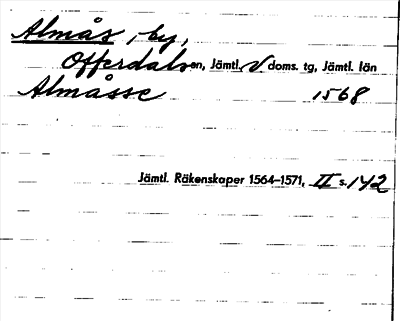 Almås, by,
Offerdals sn, Jämtl. V doms. tg, Jämtl. län
Almåsse 1568
Jämtl. Räkenskaper 1564–1571, II s. 142